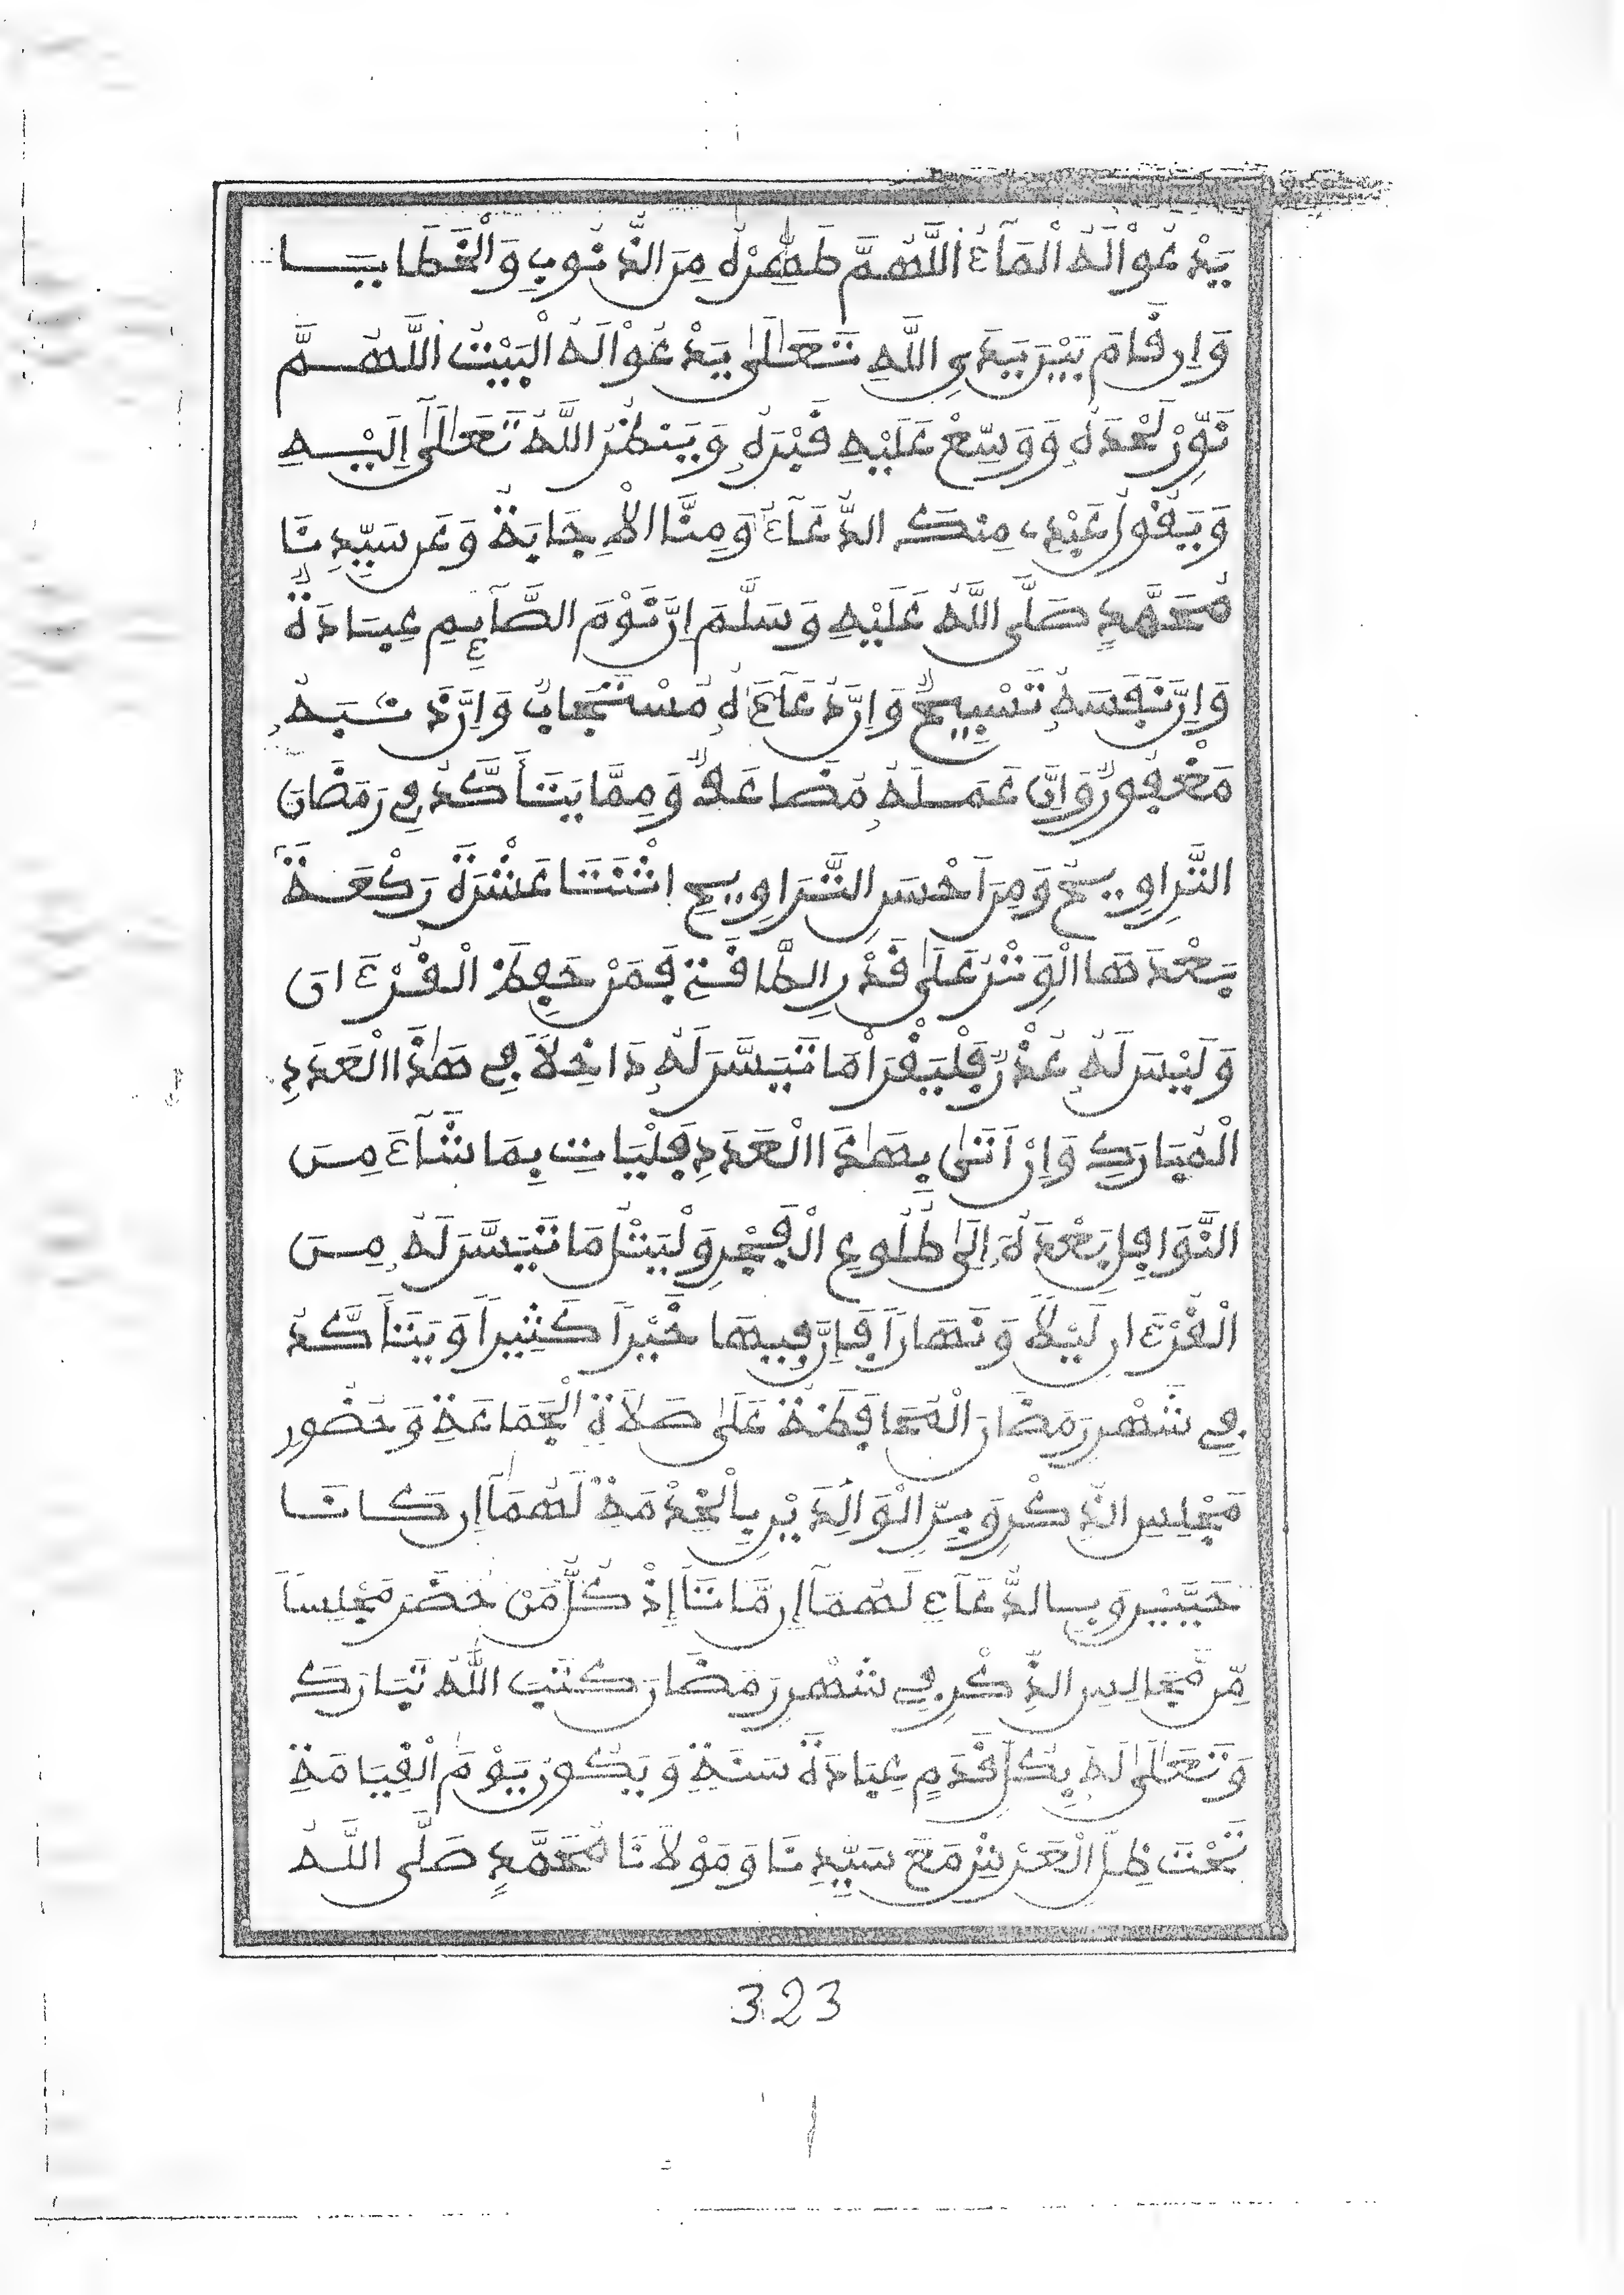 يَدْعُواْ لَهُ الْمَآءُ اللَّهُمَّ طَهِّرْهُ مِنَ الذُّنُوبِ وَالْخَطَايَا
وَإِن قَامَ بَيْنَ يَدَيِ اللَّهِ تَعَالَىٰ يَدْعُواْ لَهُ الْبَيْتُ اللَّهُمَّ
نَوِّرْ لَحْدَهُ وَوَسِّعْ عَلَيْهِ قَبْرَهُ وَيَنظُرُ اللَّهُ تَعَالَىٰ إِلَيْهِ
وَيَقُولُ عَبْدِي مِنكَ الدُّعَآءُ وَمِنَّا الْإِجَابَةُ وَعَن سَيِّدِنَا
مُحَمَّدٍ صَلَّى اللَّهُ عَلَيْهِ وَسَلَّمَ إِنَّ نَوْمَ الصَّآئِمِ عِبَادَةٌ
وَإِنَّ نَفَسَهُ تَسْبِيحٌ وَإِنَّ دُعَآءَهُ مُسْتَجَابٌ وَإِنَّ ذَنبَهُ
مَغْفُورٌ وَإِنَّ عَمَلَهُ مُضَاعَفٌ وَمِمَّا يَتَأَكَّدُ فِي رَمَضَانَ
التَّرَاوِيحُ وَمِنْ أَحْسَنِ التَّرَاوِيحِ اثْنَتَا عَشْرَةَ رَكْعَةً
بَعْدَهَا الْوِتْرُ عَلَىٰ قَدْرِ الطَّاقَةِ فَمَنْ حَفِظَ الْقُرْءَانَ
وَلَيْسَ لَهُ عُذْرٌ فَلْيَقْرَأْ مَا تَيَسَّرَ لَهُ دَاخِلاً فِي هَٰذَا الْعَدَدِ
الْمُبَارَكِ وَإِنْ أَتَىٰ بِهَٰذَا الْعَدَدِ فَلْيَاتِ بِمَا شَآءَ مِنَ
النَّوَافِلِ بَعْدَهُ إِلَىٰ طُلُوعِ الْفَجْرِ وَلْيَتْلُ مَا تَيَسَّرَ لَهُ مِنَ
الْقُرْءَانِ لَيْلاً وَنَهَاراً فَإِنَّ فِيهَا خَيْراً كَثِيراً وَيَتَأَكَّدُ
فِي شَهْرِ رَمَضَانَ الْمُحَافَظَةُ عَلَىٰ صَلاَةِ الْجَمَاعَةِ وَحُضُورِ
مَجْلِسِ الذِّكْرِ وَبِرِّ الْوَالِدَيْنِ بِالْخِدْمَةِ لَهُمَآ إِن كَانَا
حَيَّيْنِ وَبِالدُّعَآءِ لَهُمَآ إِن مَّاتَا إِذْ كُلُّ مَنْ حَضَرَ مَجْلِساً
مِّن مَّجَالِسِ الذِّكْرِ فِي شَهْرِ رَمَضَانَ كَتَبَ اللَّهُ تَبَارَكَ
وَتَعَالَىٰ لَهُ بِكُلِّ قَدَمٍ عِبَادَةَ سَنَةٍ وَيَكُونُ يَوْمَ الْقِيَامَةِ
تَحْتَ ظِلِّ الْعَرْشِ مَعَ سَيِّدِنَا وَمَوْلاَنَا مُحَمَّدٍ صَلَّى اللَّهُ
323